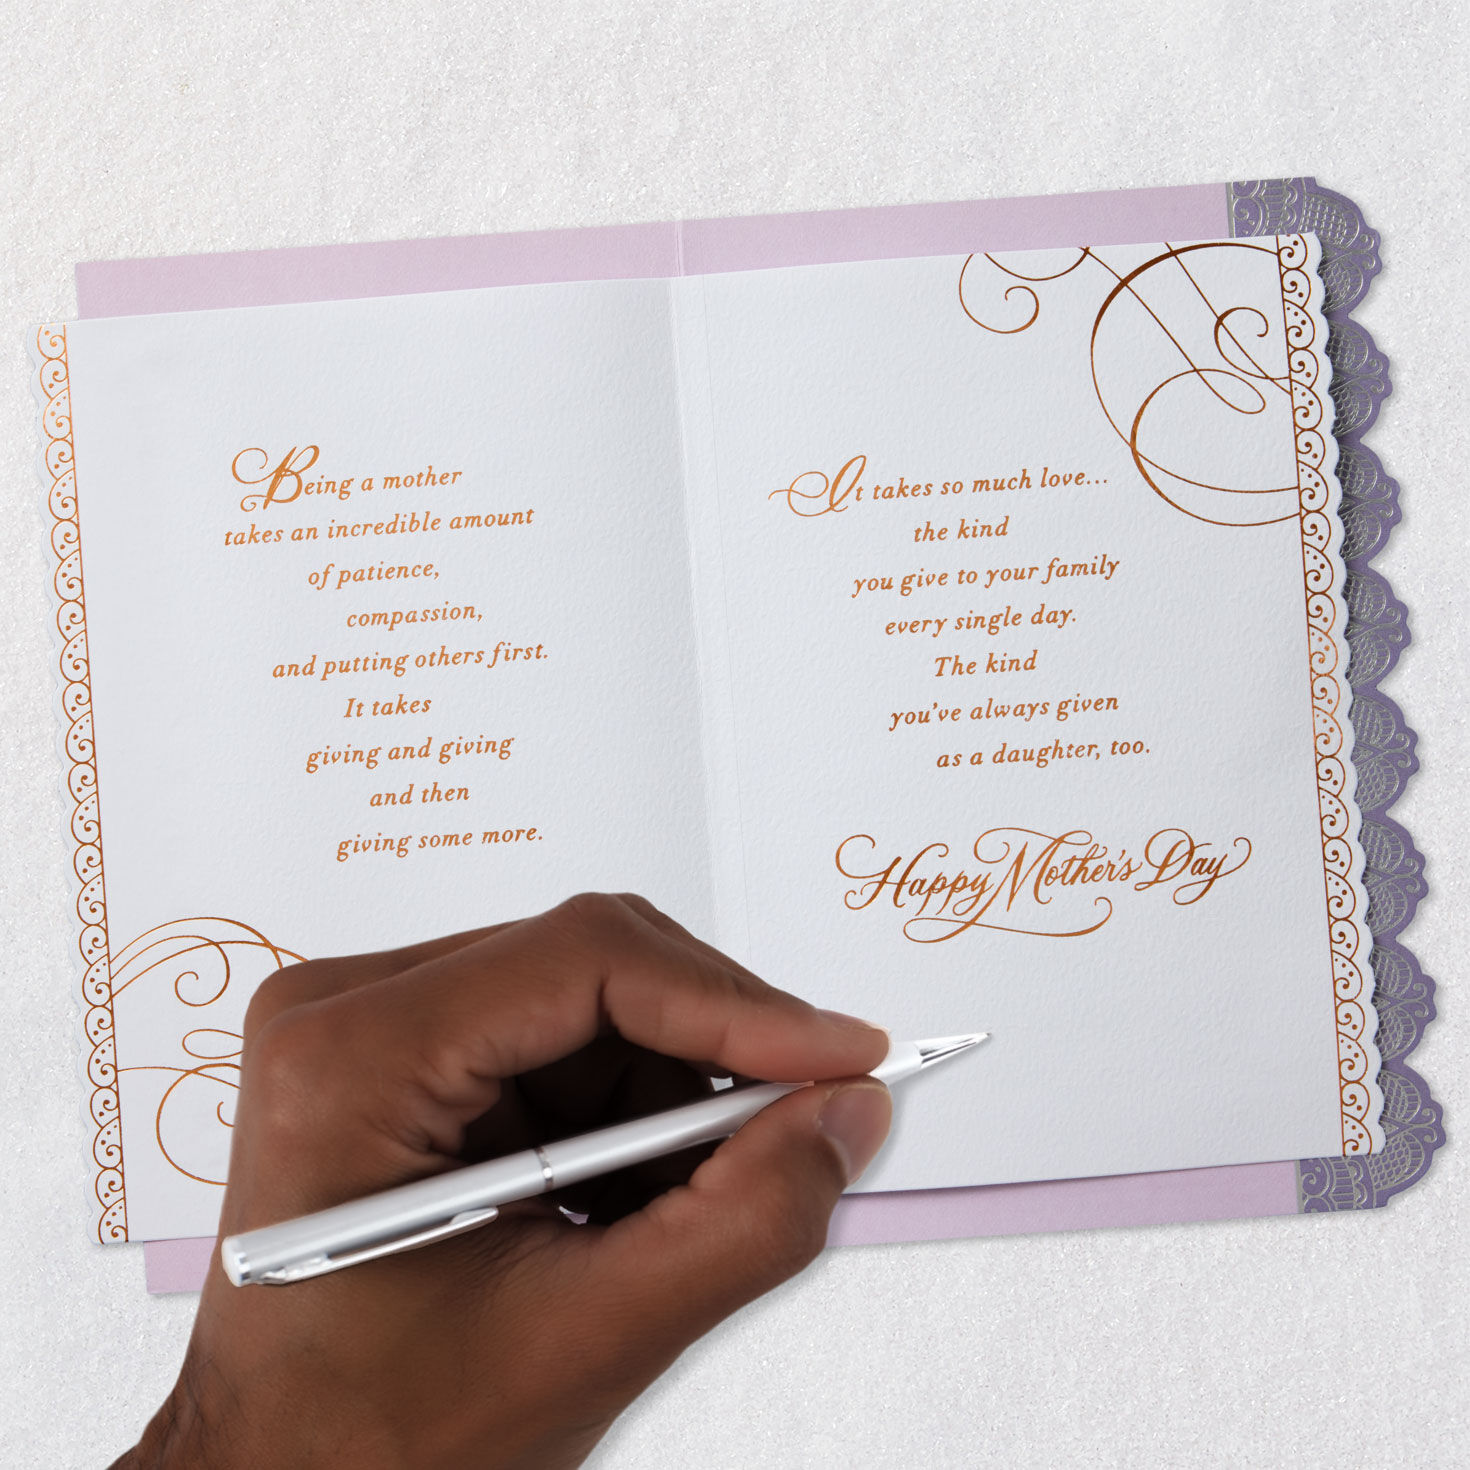 Being a mother
takes an incredible amount
of patience,
compassion,
and putting others first.
It takes
giving and giving
and then
giving some more.
It takes so much love...
the kind
you give to your family
every single day.
The kind
you've always given
as a daughter, too.
Happy Mother's Day